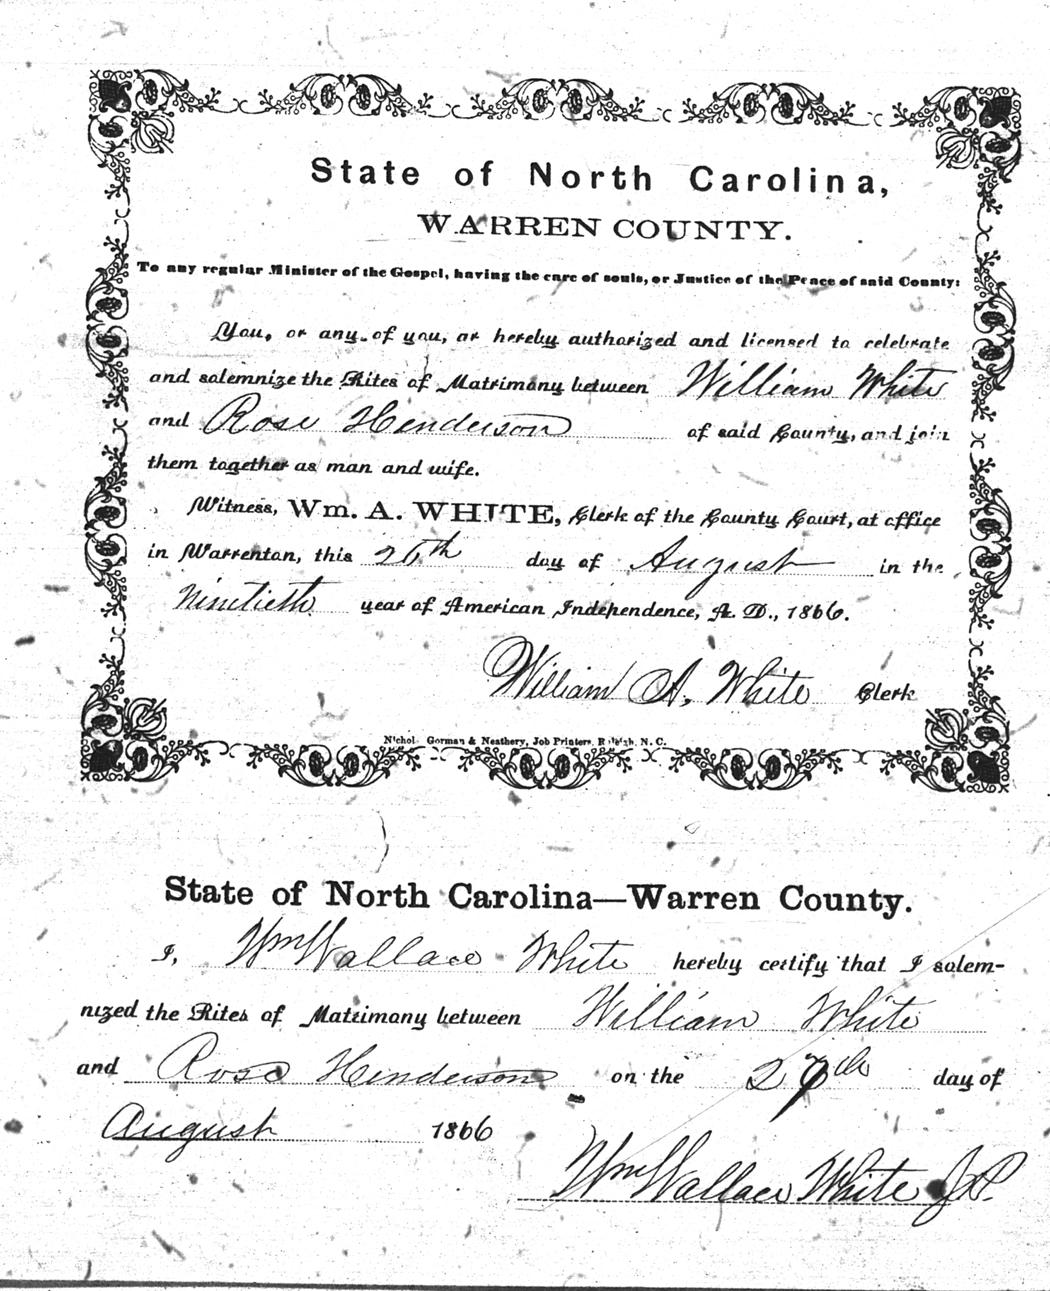 State of North Carolina,
WARREN COUNTY.
To any regular Minister of the Gospel, having the care of souls, or Justice of the Peace of said County:
You, or any of you, ar hereby authorized and licensed to celebrate
and solemnize the Rites of Matrimony between William White
and Rose Henderson of said County, and join
them together as man and wife.
Witness, Wm. A. WHITE, Clerk of the County Court, at office
in Warrenton, this day of August in the
Ninetieth year of American Independence, A. D., 1866.
William A. White Clerk
Nichol Gorman & Neathery, Job Printers, Raleigh, N. C.
State of North Carolina—Warren County.
I, Wm Wallace White hereby certify that I solem-
nized the Rites of Matrimony between William White
and Rose Henderson on the 27th day of
August 1866
Wm Wallace White J.P.